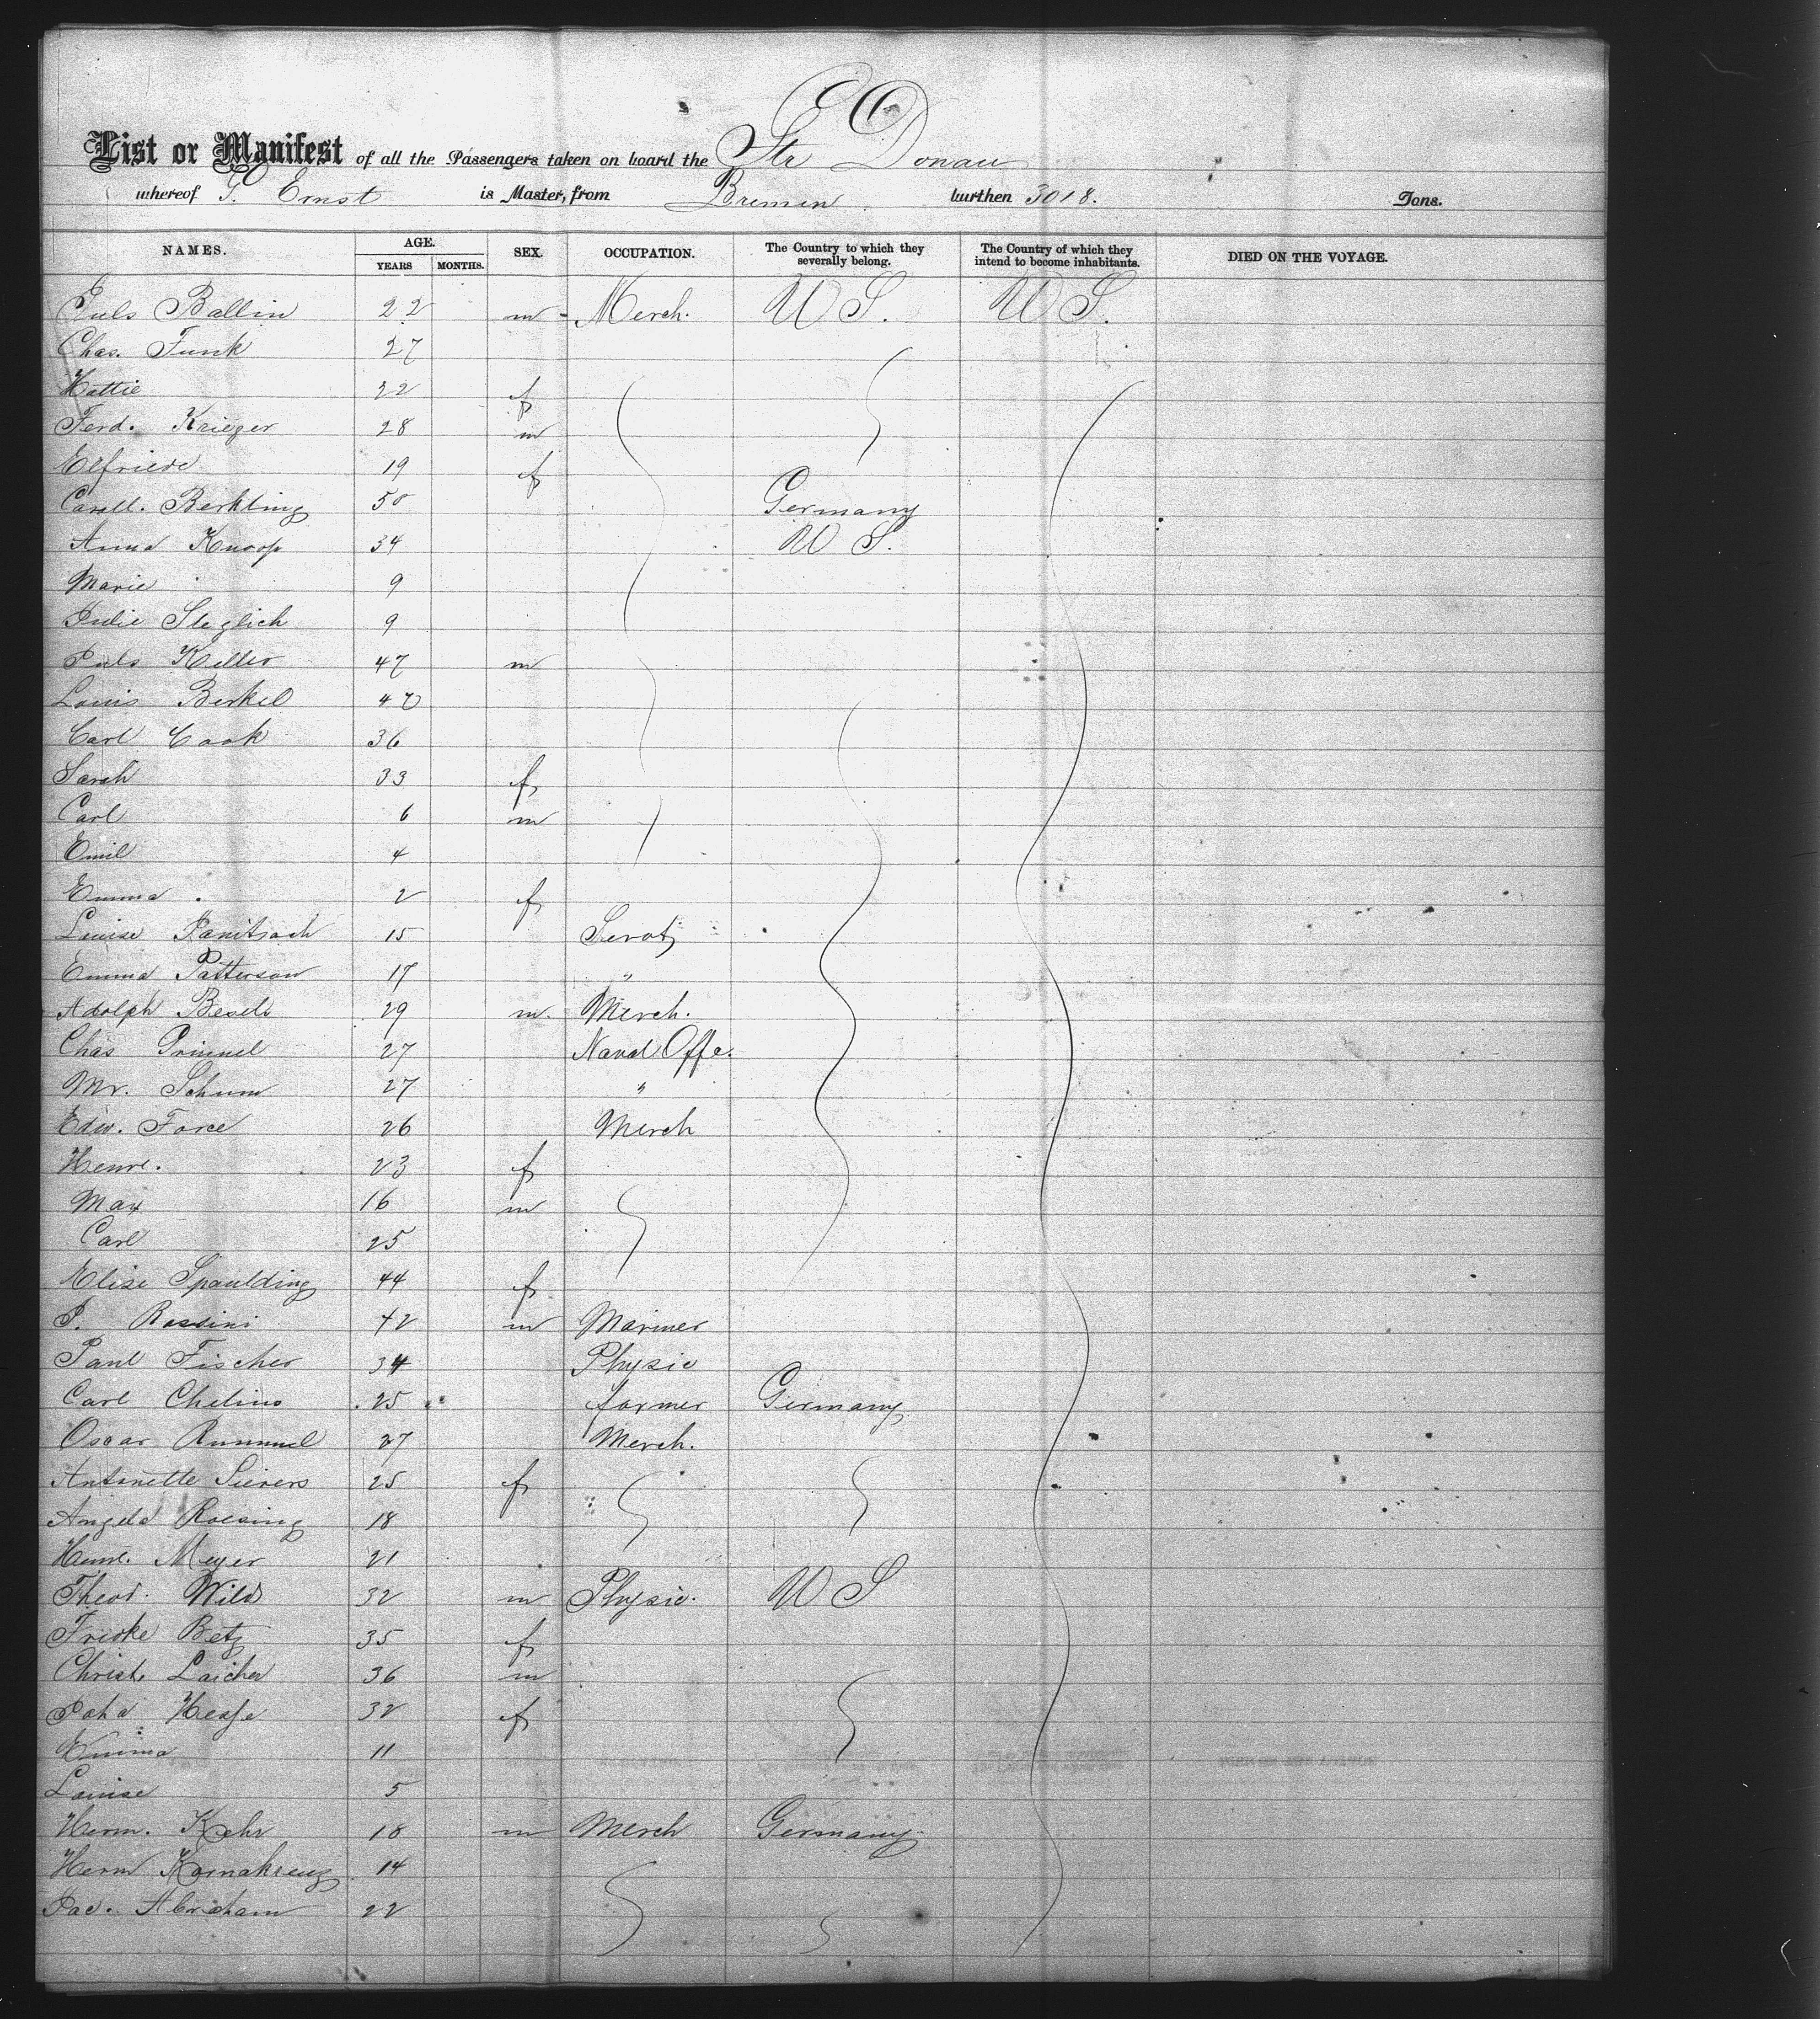 List or Manifest of all the Passengers taken on board the Str Donau
whereof G. Ernst is Master, from Bremen burthen 3018. Tons.
NAMES. AGE. SEX. OCCUPATION. The Country to which they severally belong. The Country of which they intend to become inhabitants. DIED ON THE VOYAGE.
YEARS MONTHS.
Juls Ballin 22 m Merch. U S. U S.
Chas. Funk 27
Hattie 22 f
Ferd. Krieger 28 m
Elfriede 19 f
Caroll. Berkling 50 Germany
Anna Knoop 34 U S.
Marie 9
Julie Steglich 9
Juls Keller 47 m
Louis Berkel 40
Carl Cook 36
Sarah 33 f
Carl 6 m
Emil 4
Emma 2 f
Louise Panitsach 15 Servt
Emma Patterson 17 "
Adolph Besels 29 m. Merch.
Chas Primel 27 Naval Offc.
Mr. Schum 27 "
Edw. Force 26 Merch
Henre. 23 f
Max 16 m
Carl 25
Elise Spaulding 44 f
P. Rossini 42 m Mariner
Paul Fischer 34 Physic
Carl Chelius 25 farmer Germany
Oscar Rummel 27 Merch.
Antonette Sievers 25 f
Angela Roesing 18
Henre. Meyer 21
Theod. Wild 32 m Physic. U S
Fridke Betz 35 f
Christ. Laicher 36 m
Joha Hesse 32 f
Emma 11
Louise 5
Herm. Kehr 18 m Merch Germany
Herm Kornakreuz 14
Jac. Abraham 22